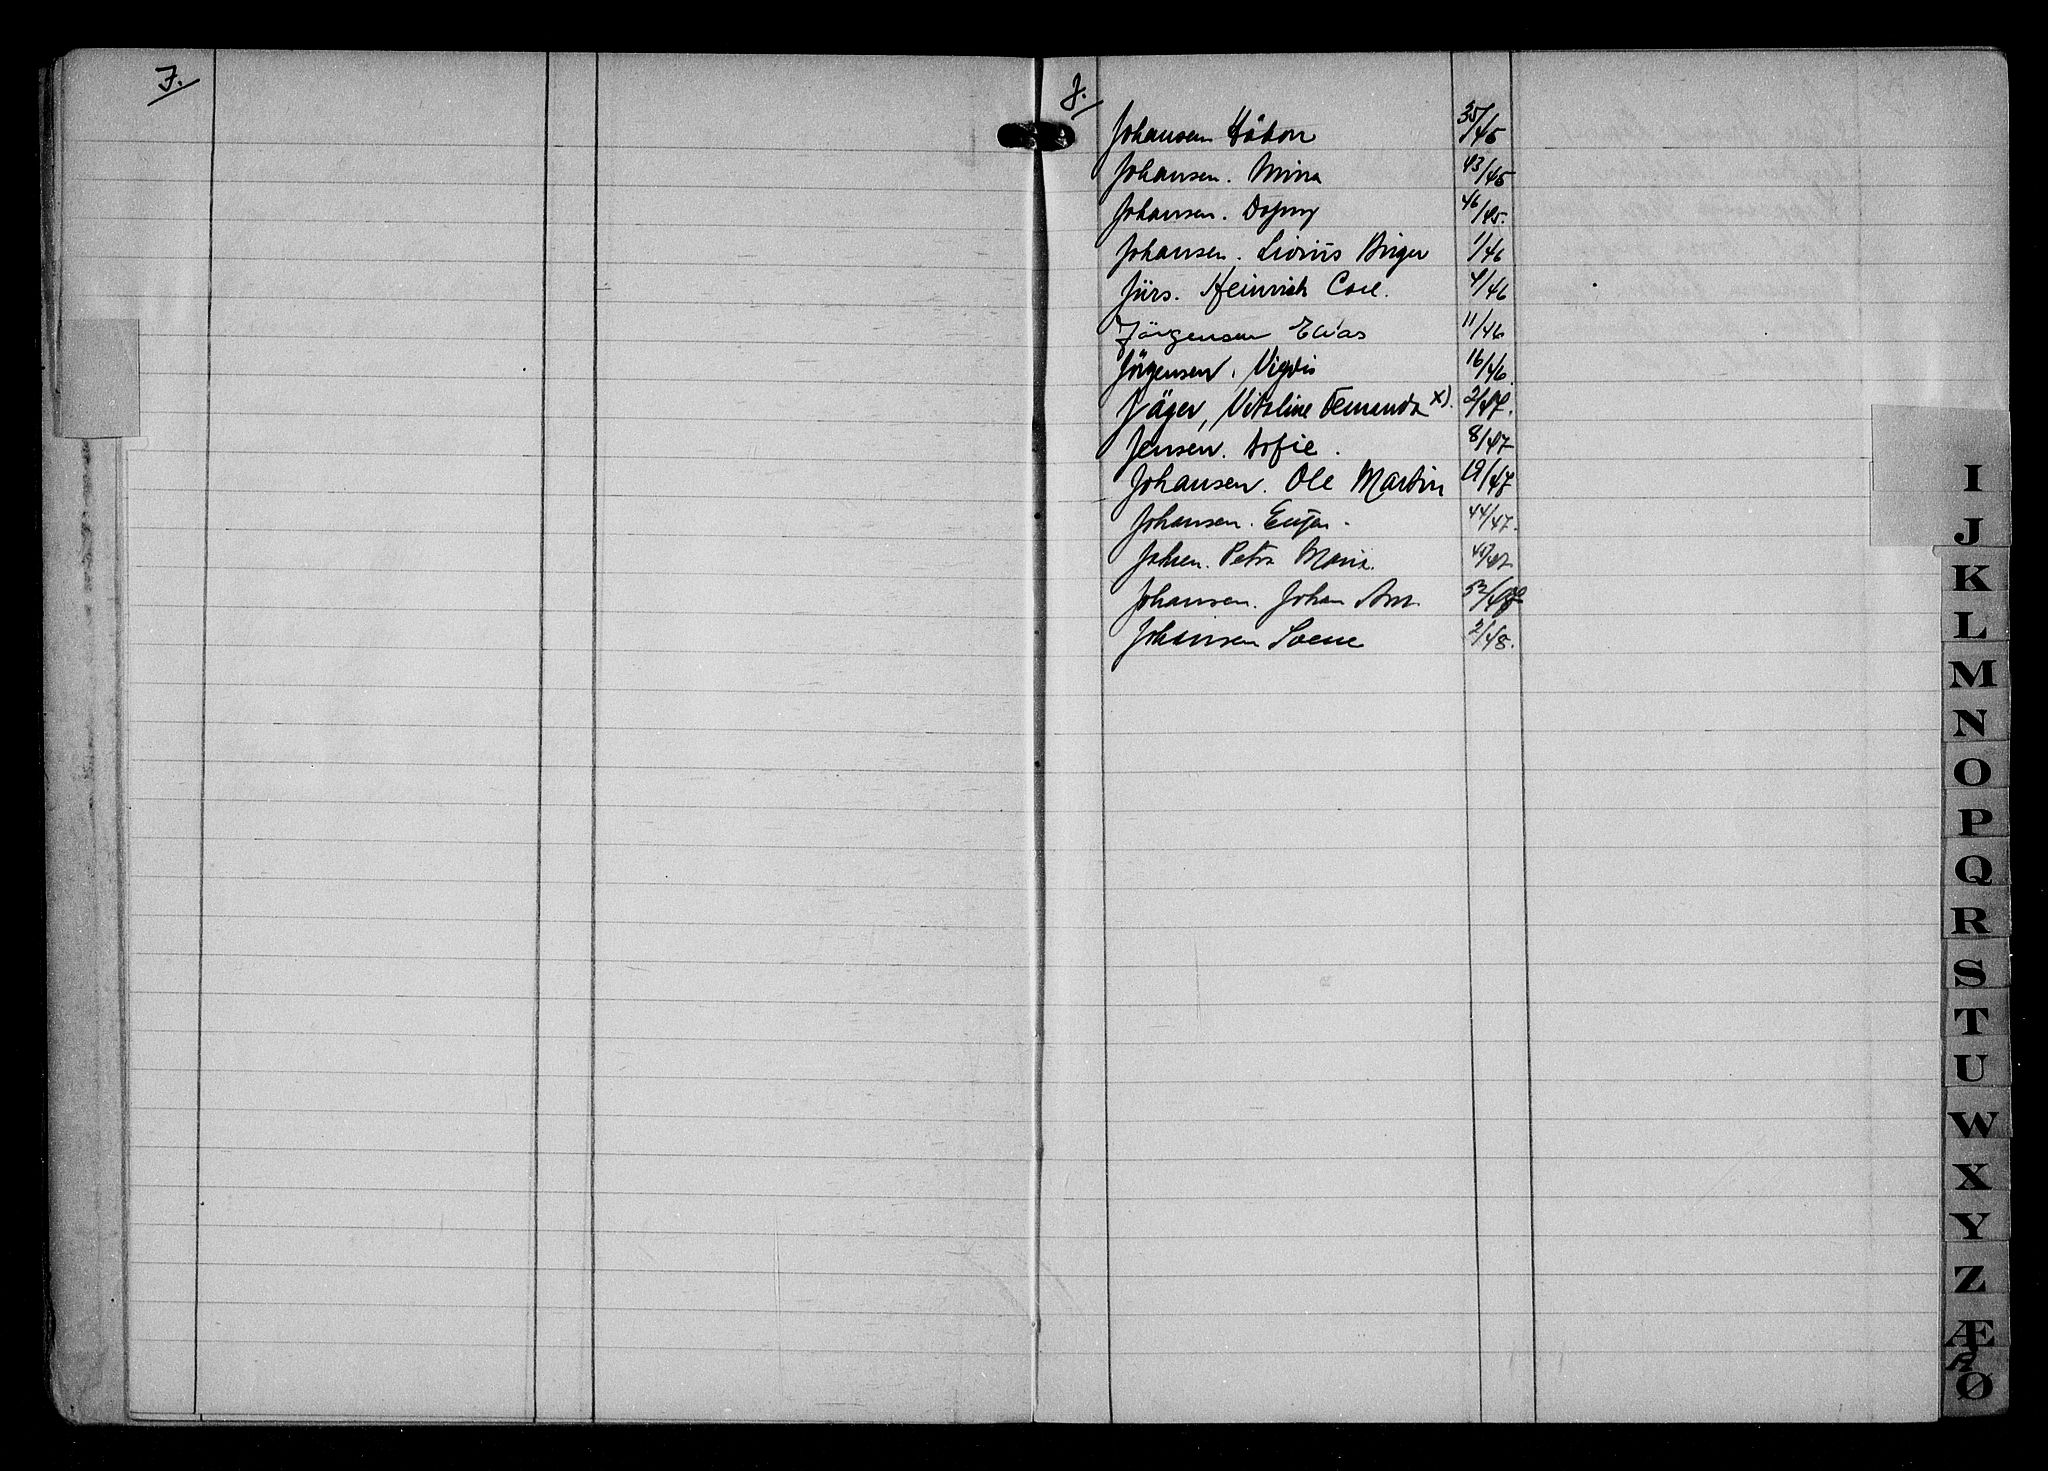 J.
J.
Johansen Håkon 35/45
Johansen. Mina 43/45
Johansen. Dagny 46/45.
Johansen. Sivius Birger 1/46
Jürs. Heinrich Carl. 4/46
Jörgensen Elias 11/46
Jörgensen. Vigdis 16/46.
Jäger, Vitaline Femanda x). 2/47.
Jensen. Sofie. 8/47
Johansen. Ole Martin 19/47
Johansen. Eugen. 44/47.
Petra Maria.
Johansen. Johan Arn. 52/47
Johansen Svene 2/48.
I
J
K
L
M
N
O
P
Q
R
S
T
U
W
X
Y
Z
Æ
Ø